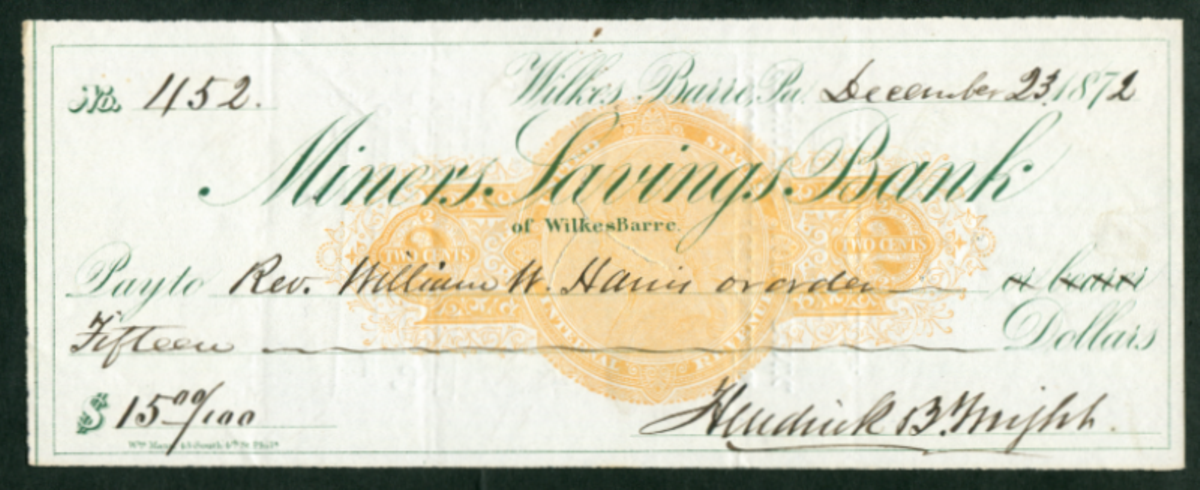 No. 452. Wilkes Barre, Pa. December 23 1872
Miners Savings Bank
of WilkesBarre.
UNITED STATES
TWO CENTS TWO CENTS
Pay to Rev. William W. Harris or order or bearer
INTERNAL REVENUE
Fifteen Dollars
$ 15 00/100 Hendrick B. Wright.